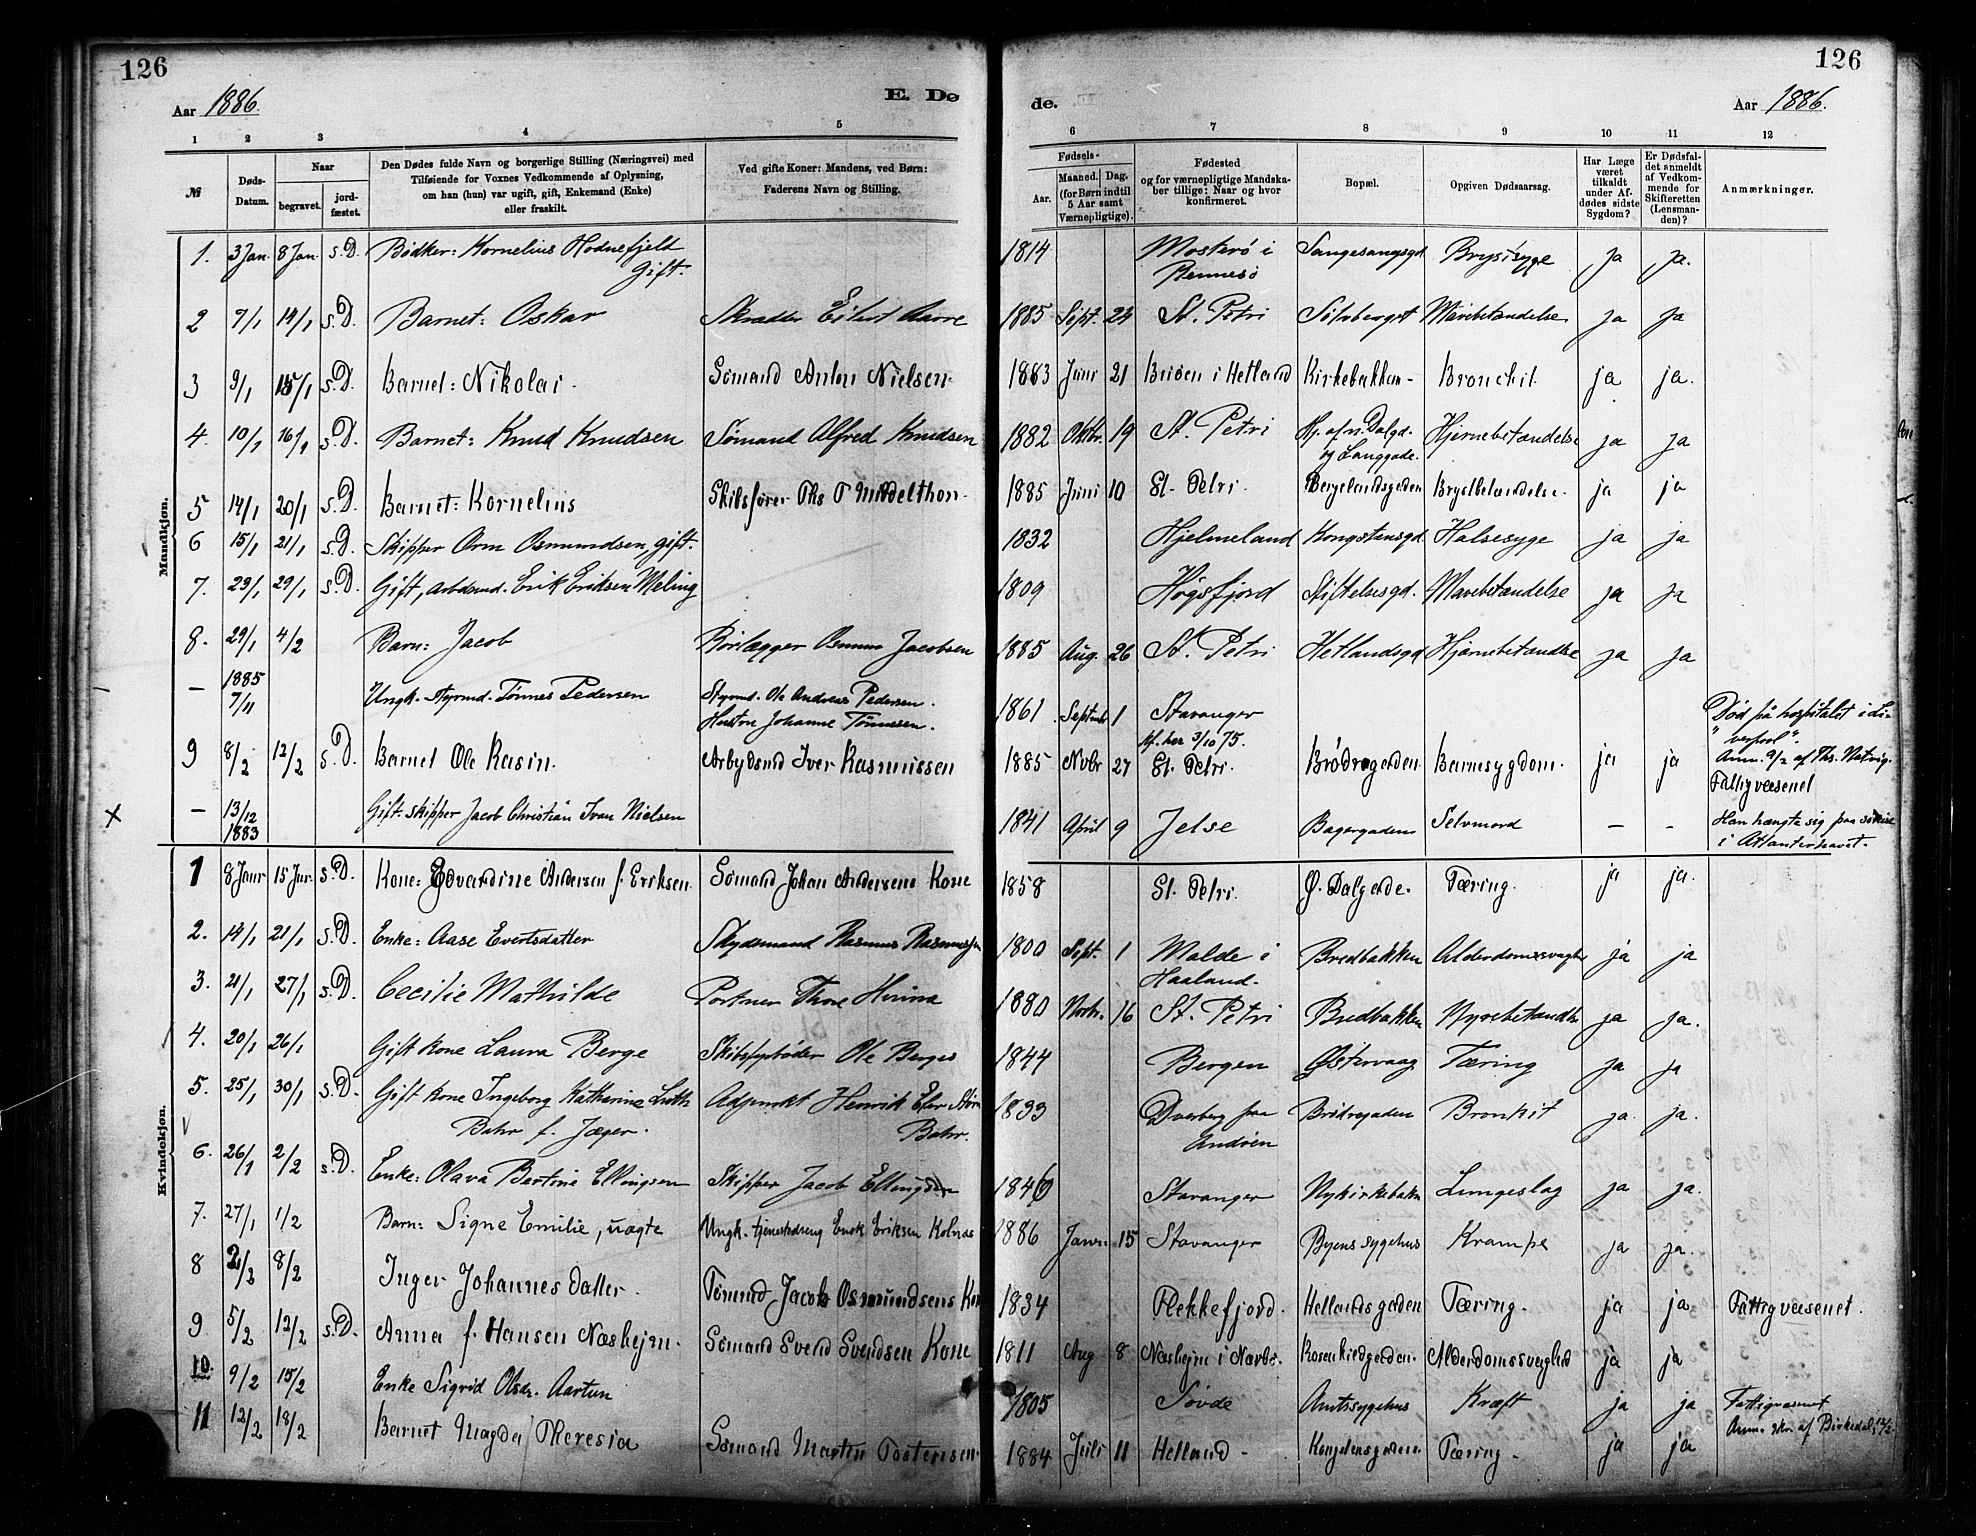 126
126
Aar 1886.
E. Dø
de.
Aar 1886.
1 2 3 4 5 6 7 8 9 10 11 12
№
Døds-Datum.
Naar
begravet.
jord-fæstet.
Den Dødes fulde Navn og borgerlige Stilling (Næringsvei) med
Tilføiende for Voxnes Vedkommende af Oplysning,
om han (hun) var ugift, gift, Enkemand (Enke)
eller fraskilt.
Ved gifte Koner: Mandens, ved Børn:
Faderens Navn og Stilling.
Fødsels-
Aar.
Maaned. Dag.
(for Børn indtil
5 Aar samt
Værnepligtige).
Fødested
og for værnepligtige Mandska-
ber tillige: Naar og hvor
konfirmeret.
Bopæl.
Opgiven Dødsaarsag.
Har Læge
været
tilkaldt
under Af-
dødes sidste
Sygdom?
Er Dødsfal-
det anmeldt
af Vedkom-
mende for
Skifteretten
(Lensman-
den)?
Anmærkninger.
Mandkjøn.
1. 3 Jan. 8 Jan. s.D. Bødker: Kornelius Hodnefjeld 1814 Mosterø i Brystsyge ja ja.
Gift. Rennesø
2 7/1 14/1 s.D. Barnet: Oskar Skrædder Eilert Aarre 1885 Sept. 24 St. Petri Sølvbergst Mavebetændelse ja ja
3 9/1 15/1 s.D. Barnet: Nikolai. Sømand Anton Nielsen. 1883 Juni 21 Buøen i Hetland Kirkebakken- Bronchit. ja ja.
4. 10/1 16/1 s.D. Barnet: Knud Knudsen Sømand Alfred Knudsen 1882 Oktbr. 19 St. Petri Hj. af n. Dalgd. Hjernebetændelse ja ja
og Langgade.
5 14/1 20/1 s.D. Barnet: Kornelius Skibsfører Ths T Middelthon. 1885 Juni 10 St. Petri. Bergelandsgaden Brystbetændelse. ja ja
6 15/1 21/1 s.D. Skipper Orm Osmundsen, gift. 1832 Hjelmeland Kongstensgd. Halsesyge ja ja
7. 23/1 29/1 s.D. Gift, Arbdsmd. Erik Eriksen Meling 1809 Høgsfjord Stiftelsesgd. Mavebetændelse ja ja
8. 29/1 4/2 Barn: Jacob Rørlægger Osmun Jacobsen 1885 Aug. 26 St. Petri Hetlandsgd Hjernebetændelse ja ja
– 1885
7/11 Ungk. Styrmd. Tønnes Pedersen Styrmd. Ole Andreas Pedersen. 1861 Septmb 1 Stavanger Død på hospitalet i Li-
Hustru Johanne Tønnesen. kf. her 3/10 75. "verpool".
9 8/2 12/2 s.D. Barnet Ole Kasin. Arbydsmd Iver Rasmussen 1885 Nvbr 27 St. Petri. Brødregaden Barnesygdom. ja ja Anm. 9/2 af Ths. Natvig.
Fattigvæsenet
– 13/12 Gift. Skipper Jacob Christian Ivan Nielsen 1841 April 9 Jelse Bagergaden Selvmord – – Han hængte sig paa søreise
1883 i Atlanterhavet.
Kvindekjøn.
1 8 Janr 15 Jnr. s.D. Kone: Edvardine Andersen f. Eriksen. Sømand Johan Andersens Kone 1858 St. Petri. Ø. Dalgade. Tæring. ja ja.
2. 14/1 21/1 s.D. Enke: Aase Evertsdatter Skydsmand Rasmus Rasmussen 1800 Sept. 1 Malde i Bredbakken Alderdomssvagh ja ja
Haaland.
3. 21/1 27/1 s.D. Cecilie Mathilde Portner Thore Hinna 1880 Novbr. 16 St. Petri Bredbakken Nyrebetændls ja ja.
4. 20/1 26/1 Gift kone Laura Berge Ole Berges 1844 Bergen Østervaag Tæring ja ja
5. 25/1 30/1 s.D. Gift kone Ingeborg Katharine Adjunkt Henrik 1833 Dverberg paa Brødregaden Bronkit ja. ja.
Bahr f. Jæger. Bahr. Andøen
6. 26/1 2/2 s.D. Enke: Olava Bertine Ellingsen Skipper Jacob Ellingsen 1840 Stavanger Nykirkebakn Lungeslag ja ja.
7. 27/1 1/2 Barn: Signe Emilie, uægte Ungk. tjenestedreng Enok Eriksen Kolnes 1886 Janr. 15 Stavanger Byens sygehus Krampe ja ja.
8 2/2 8/2 Inger Johannesdatter. Tømmd Jacob Osmundsens Kon 1834 Flekkefjord. Hetlandsgaden Tæring. ja ja Fattigvæsenet.
9 5/2 12/2 s.D. Anna f. Hansen Næshejm. Sømand Svend Svendsen Kone 1811 Aug 8 Næshejm i Rosenkildgaden. Alderdomssvaghed ja ja
10. 9/2 15/2 Enke Sigrid Olsdr. Aartun 1805 Søvde Amtssygehus Kræft ja ja Fattigvæsenet
11 12/2 18/2 Barnet Magda Theresia Sømand Martin Tostensen 1884 Juli 11 Hetland- Kongstensgaden. Tæring. ja ja Anm. skr. af Birkedal, 12/2.